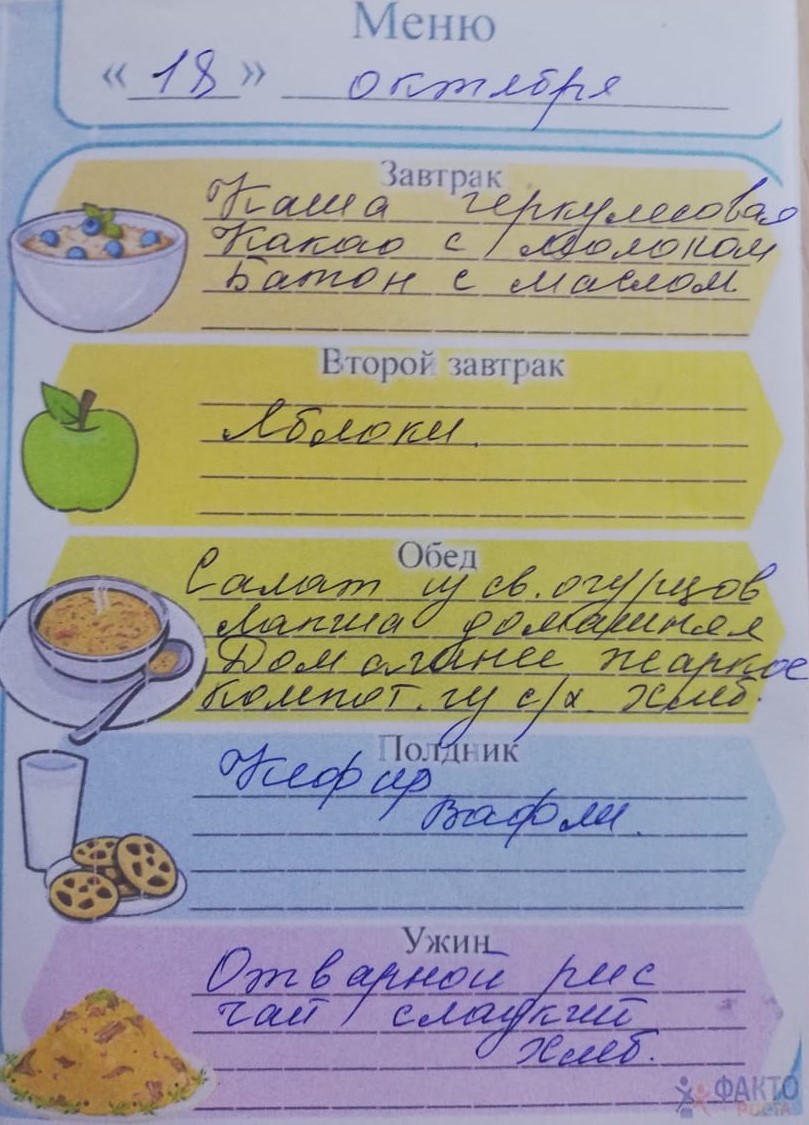 Меню
« 18 » октября
Завтрак
Каша геркулесовая
Какао с молоком
Батон с маслом
Второй завтрак
Яблоки.
Обед
Салат из св. огурцов
Лапша домашняя
Домашнее жаркое
Компот. из с/х. Хлеб.
Полдник
Кефир
Вафли.
Ужин
Отварной рис
чай сладкий
Хлеб.
ФАКТО
РОСТА